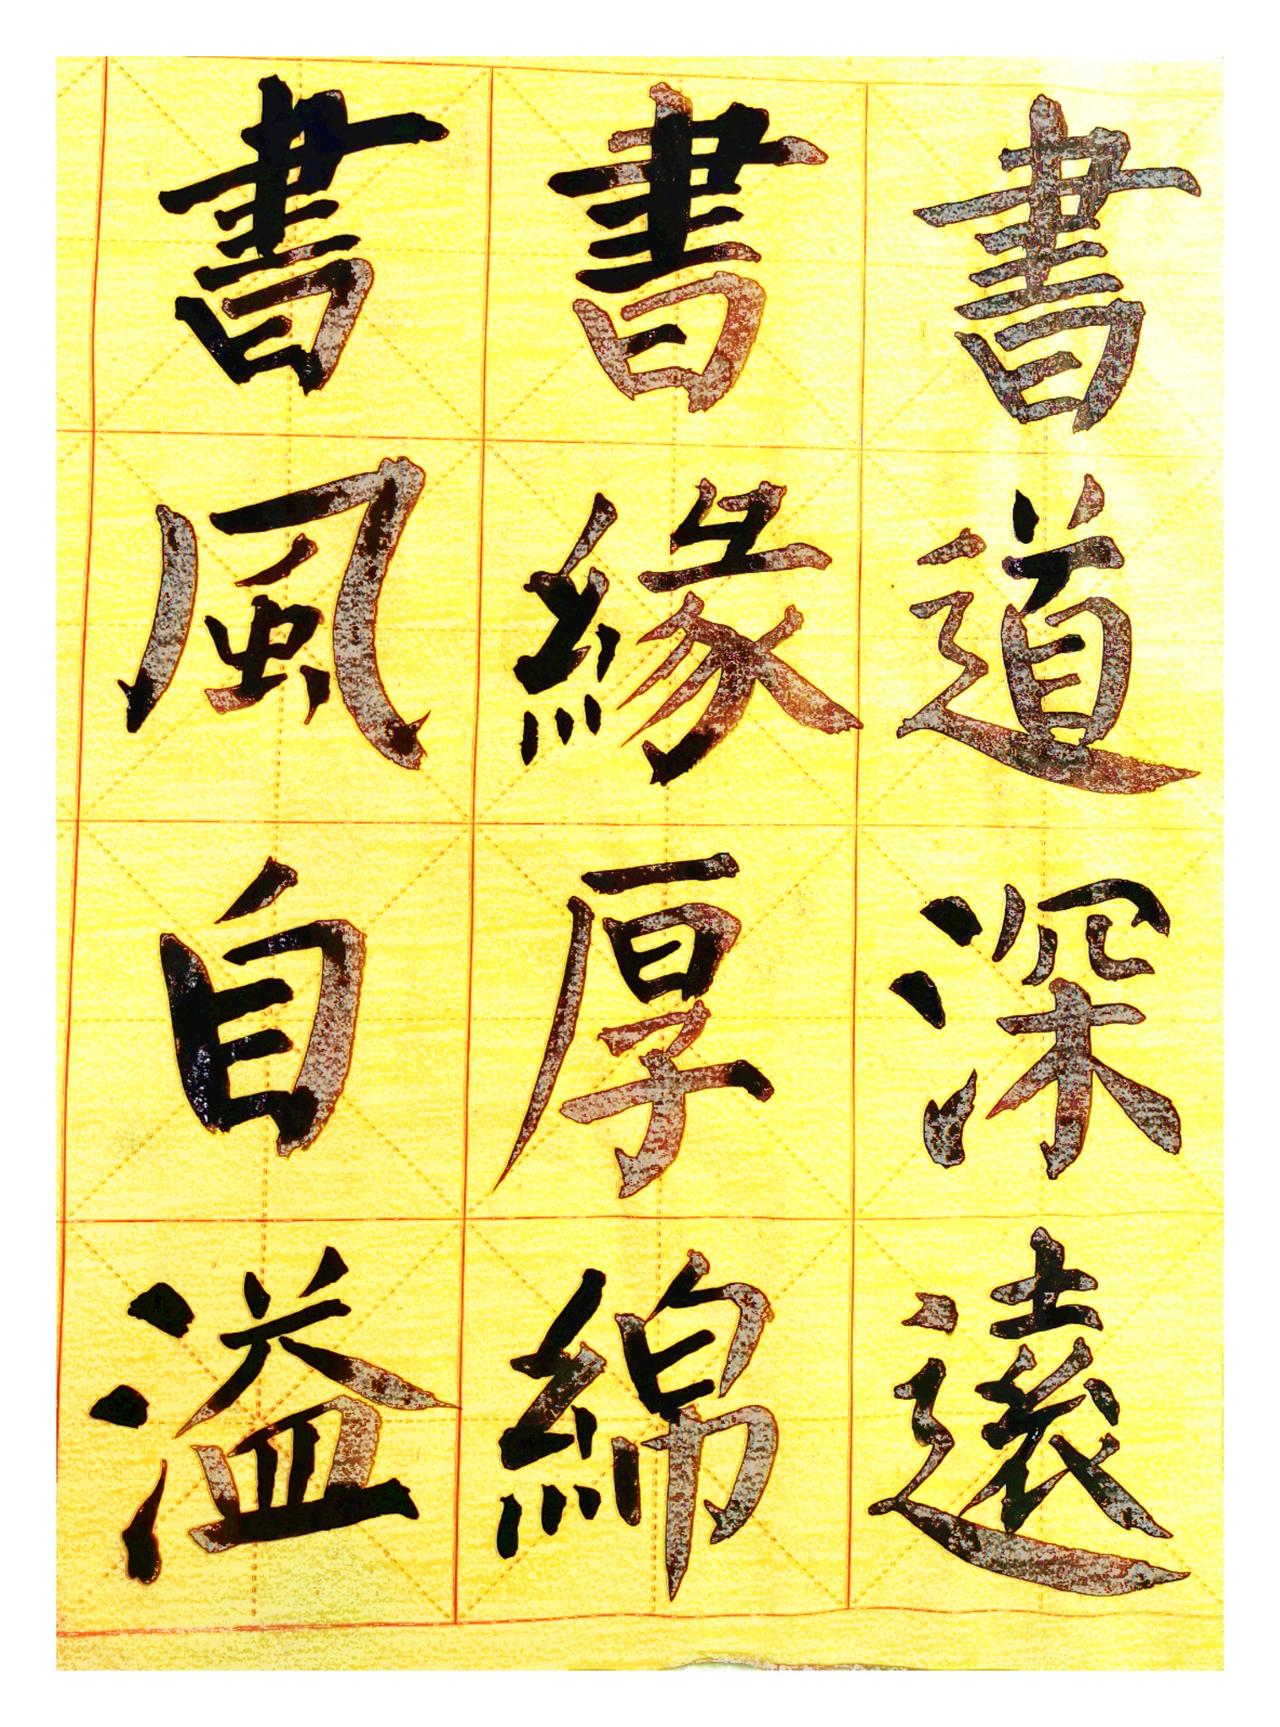 書道深遠
書緣厚綿
書風自溢